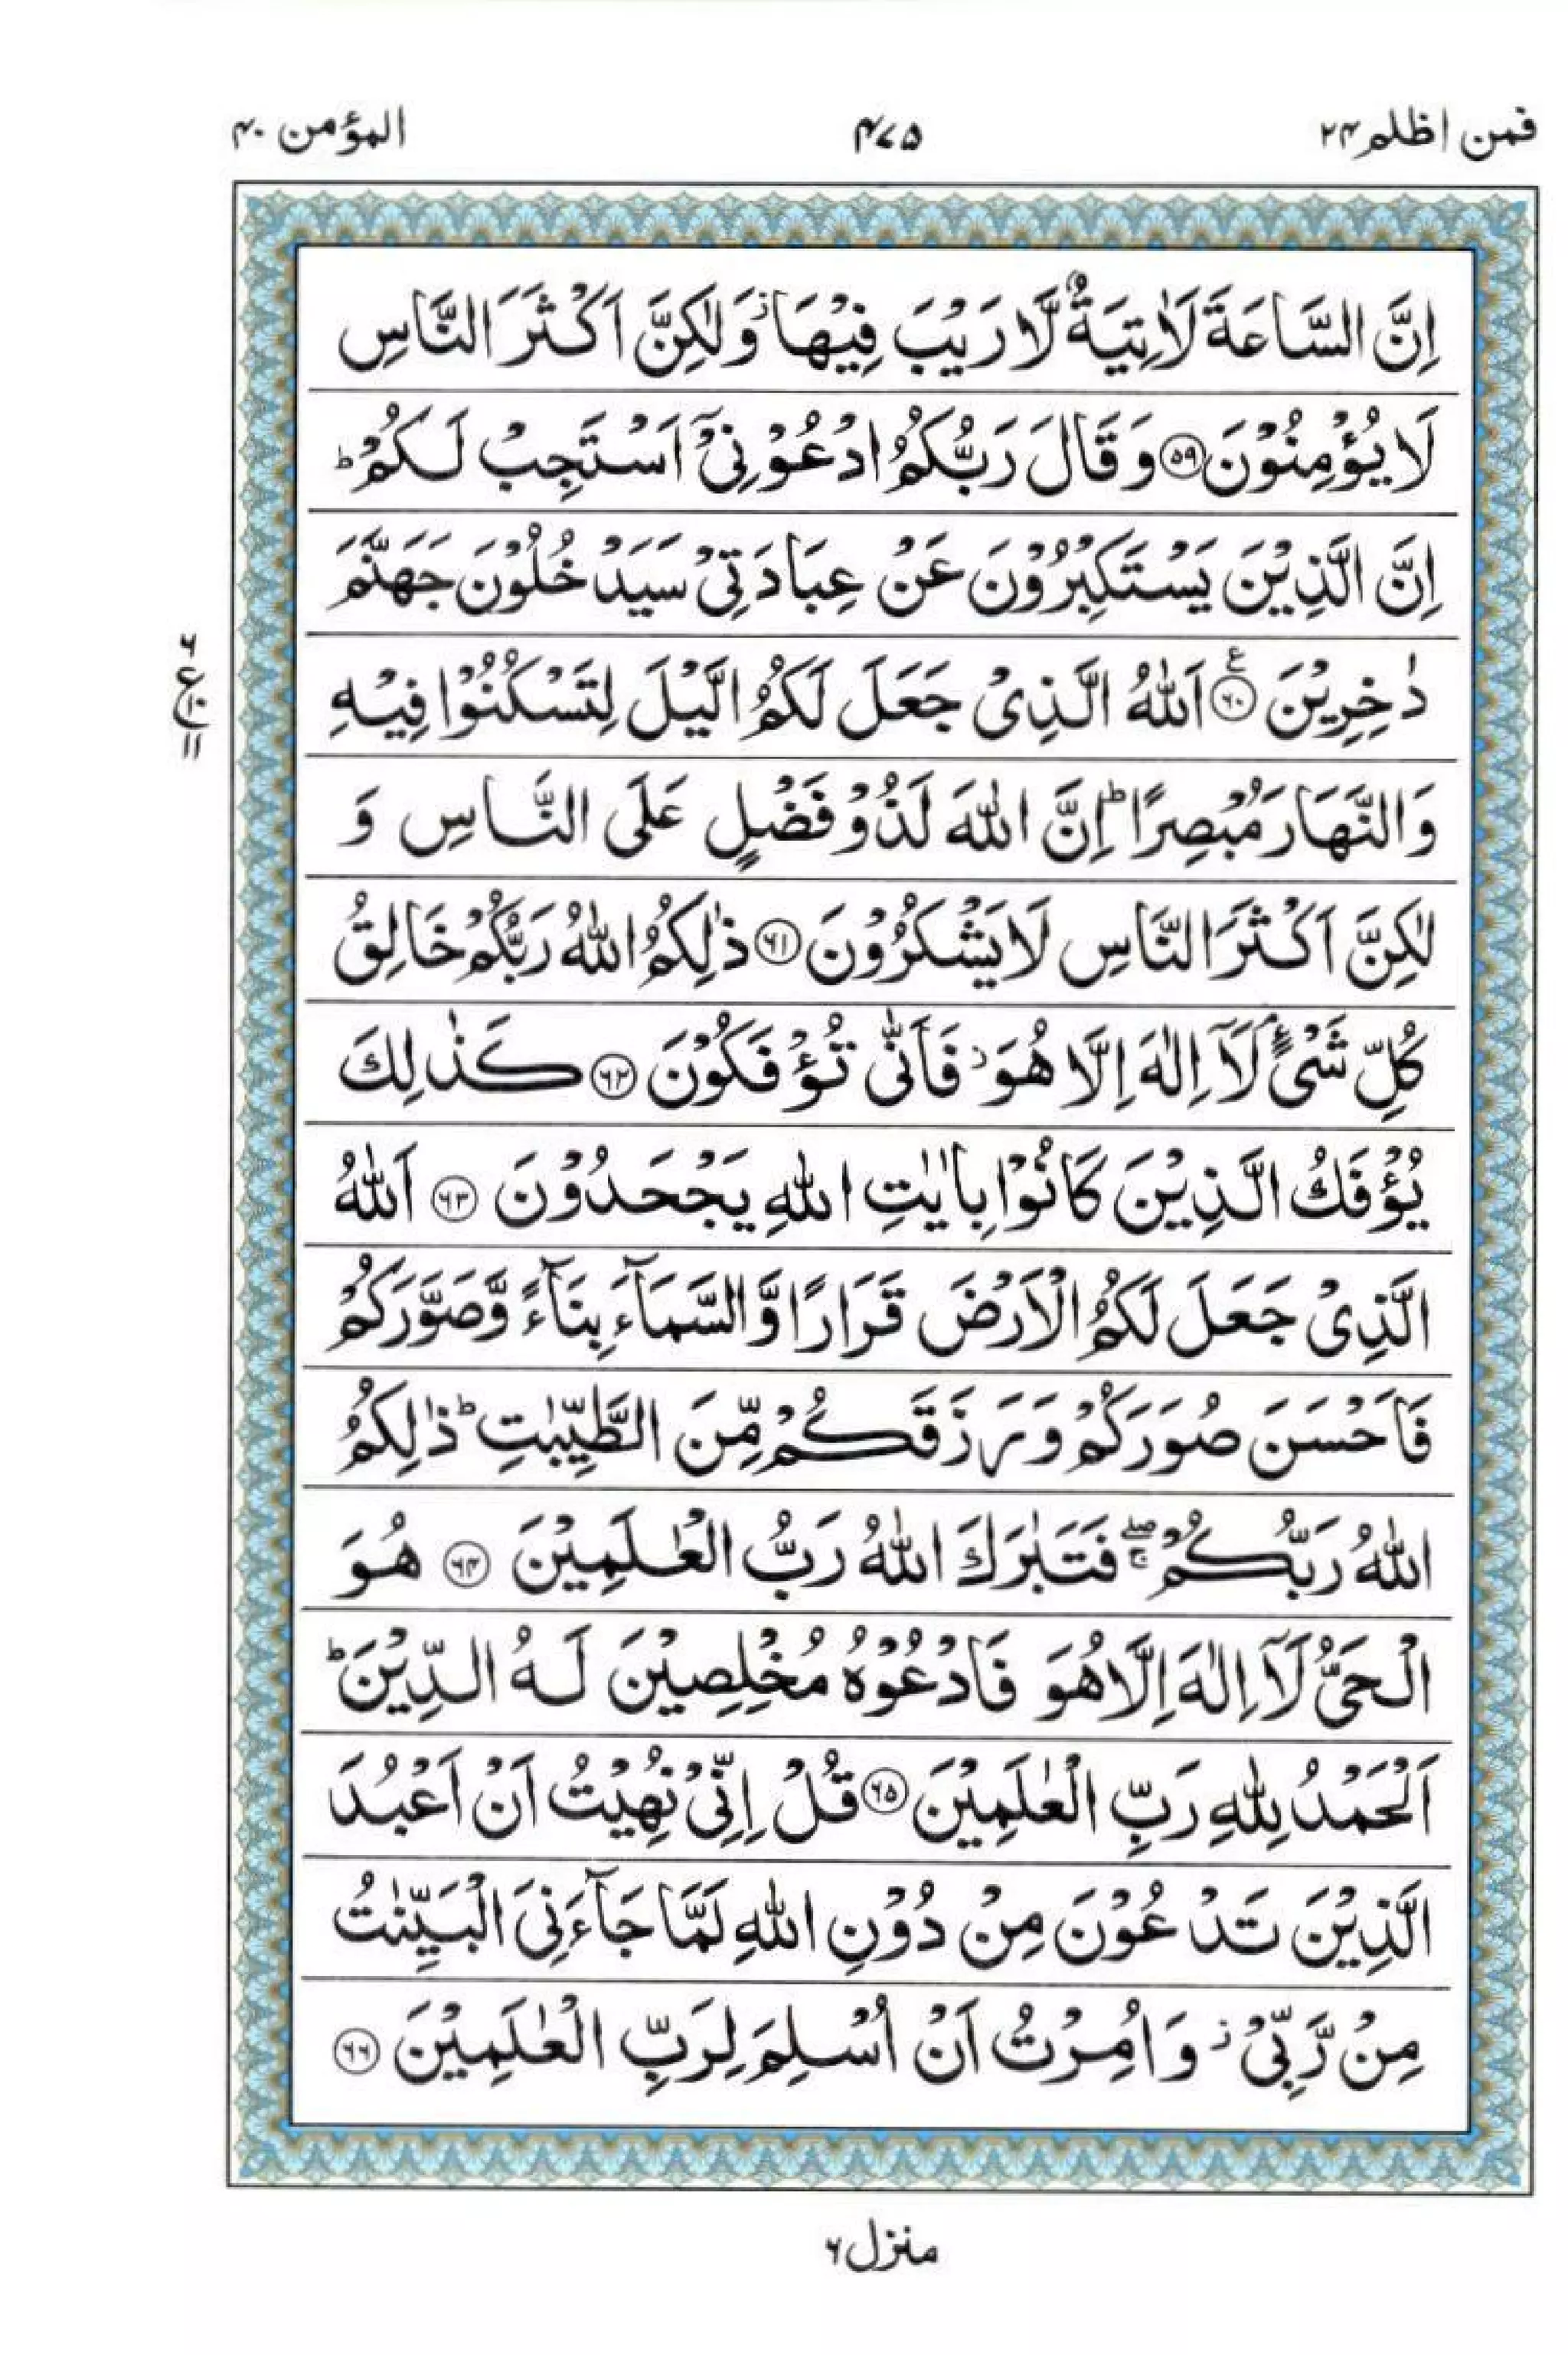 فمن اظلم ۲۴
۴۷۵
المؤمن ۴۰
اِنَّ السَّاعَةَ لَاٰتِيَةٌ لَّا رَيْبَ فِيْهَا ؗ وَلٰكِنَّ اَكْثَرَ النَّاسِ
لَا يُؤْمِنُوْنَ ۵۹ وَقَالَ رَبُّكُمُ ادْعُوْنِيْٓ اَسْتَجِبْ لَكُمْ ؕ
اِنَّ الَّذِيْنَ يَسْتَكْبِرُوْنَ عَنْ عِبَادَتِيْ سَيَدْخُلُوْنَ جَهَنَّمَ
دٰخِرِيْنَ ۶۰ ع اَللّٰهُ الَّذِيْ جَعَلَ لَكُمُ الَّيْلَ لِتَسْكُنُوْا فِيْهِ
وَالنَّهَارَ مُبْصِرًا ؕ اِنَّ اللّٰهَ لَذُوْ فَضْلٍ عَلَى النَّاسِ وَ
لٰكِنَّ اَكْثَرَ النَّاسِ لَا يَشْكُرُوْنَ ۶۱ ذٰلِكُمُ اللّٰهُ رَبُّكُمْ خَالِقُ
كُلِّ شَيْءٍ ۘ لَآ اِلٰهَ اِلَّا هُوَ ؗ فَاَنّٰى تُؤْفَكُوْنَ ۶۲ كَذٰلِكَ
يُؤْفَكُ الَّذِيْنَ كَانُوْا بِاٰيٰتِ اللّٰهِ يَجْحَدُوْنَ ۶۳ اَللّٰهُ
الَّذِيْ جَعَلَ لَكُمُ الْاَرْضَ قَرَارًا وَّالسَّمَآءَ بِنَآءً وَّصَوَّرَكُمْ
فَاَحْسَنَ صُوَرَكُمْ وَرَزَقَكُمْ مِّنَ الطَّيِّبٰتِ ؕ ذٰلِكُمُ
اللّٰهُ رَبُّكُمْ ۖۚ فَتَبٰرَكَ اللّٰهُ رَبُّ الْعٰلَمِيْنَ ۶۴ هُوَ
الْحَيُّ لَآ اِلٰهَ اِلَّا هُوَ فَادْعُوْهُ مُخْلِصِيْنَ لَهُ الدِّيْنَ ؕ
اَلْحَمْدُ لِلّٰهِ رَبِّ الْعٰلَمِيْنَ ۶۵ قُلْ اِنِّيْ نُهِيْتُ اَنْ اَعْبُدَ
الَّذِيْنَ تَدْعُوْنَ مِنْ دُوْنِ اللّٰهِ لَمَّا جَآءَنِيَ الْبَيِّنٰتُ
مِنْ رَّبِّيْ ؗ وَاُمِرْتُ اَنْ اُسْلِمَ لِرَبِّ الْعٰلَمِيْنَ ۶۶
۶
ع ۱۰
۱۱
منزل ۶